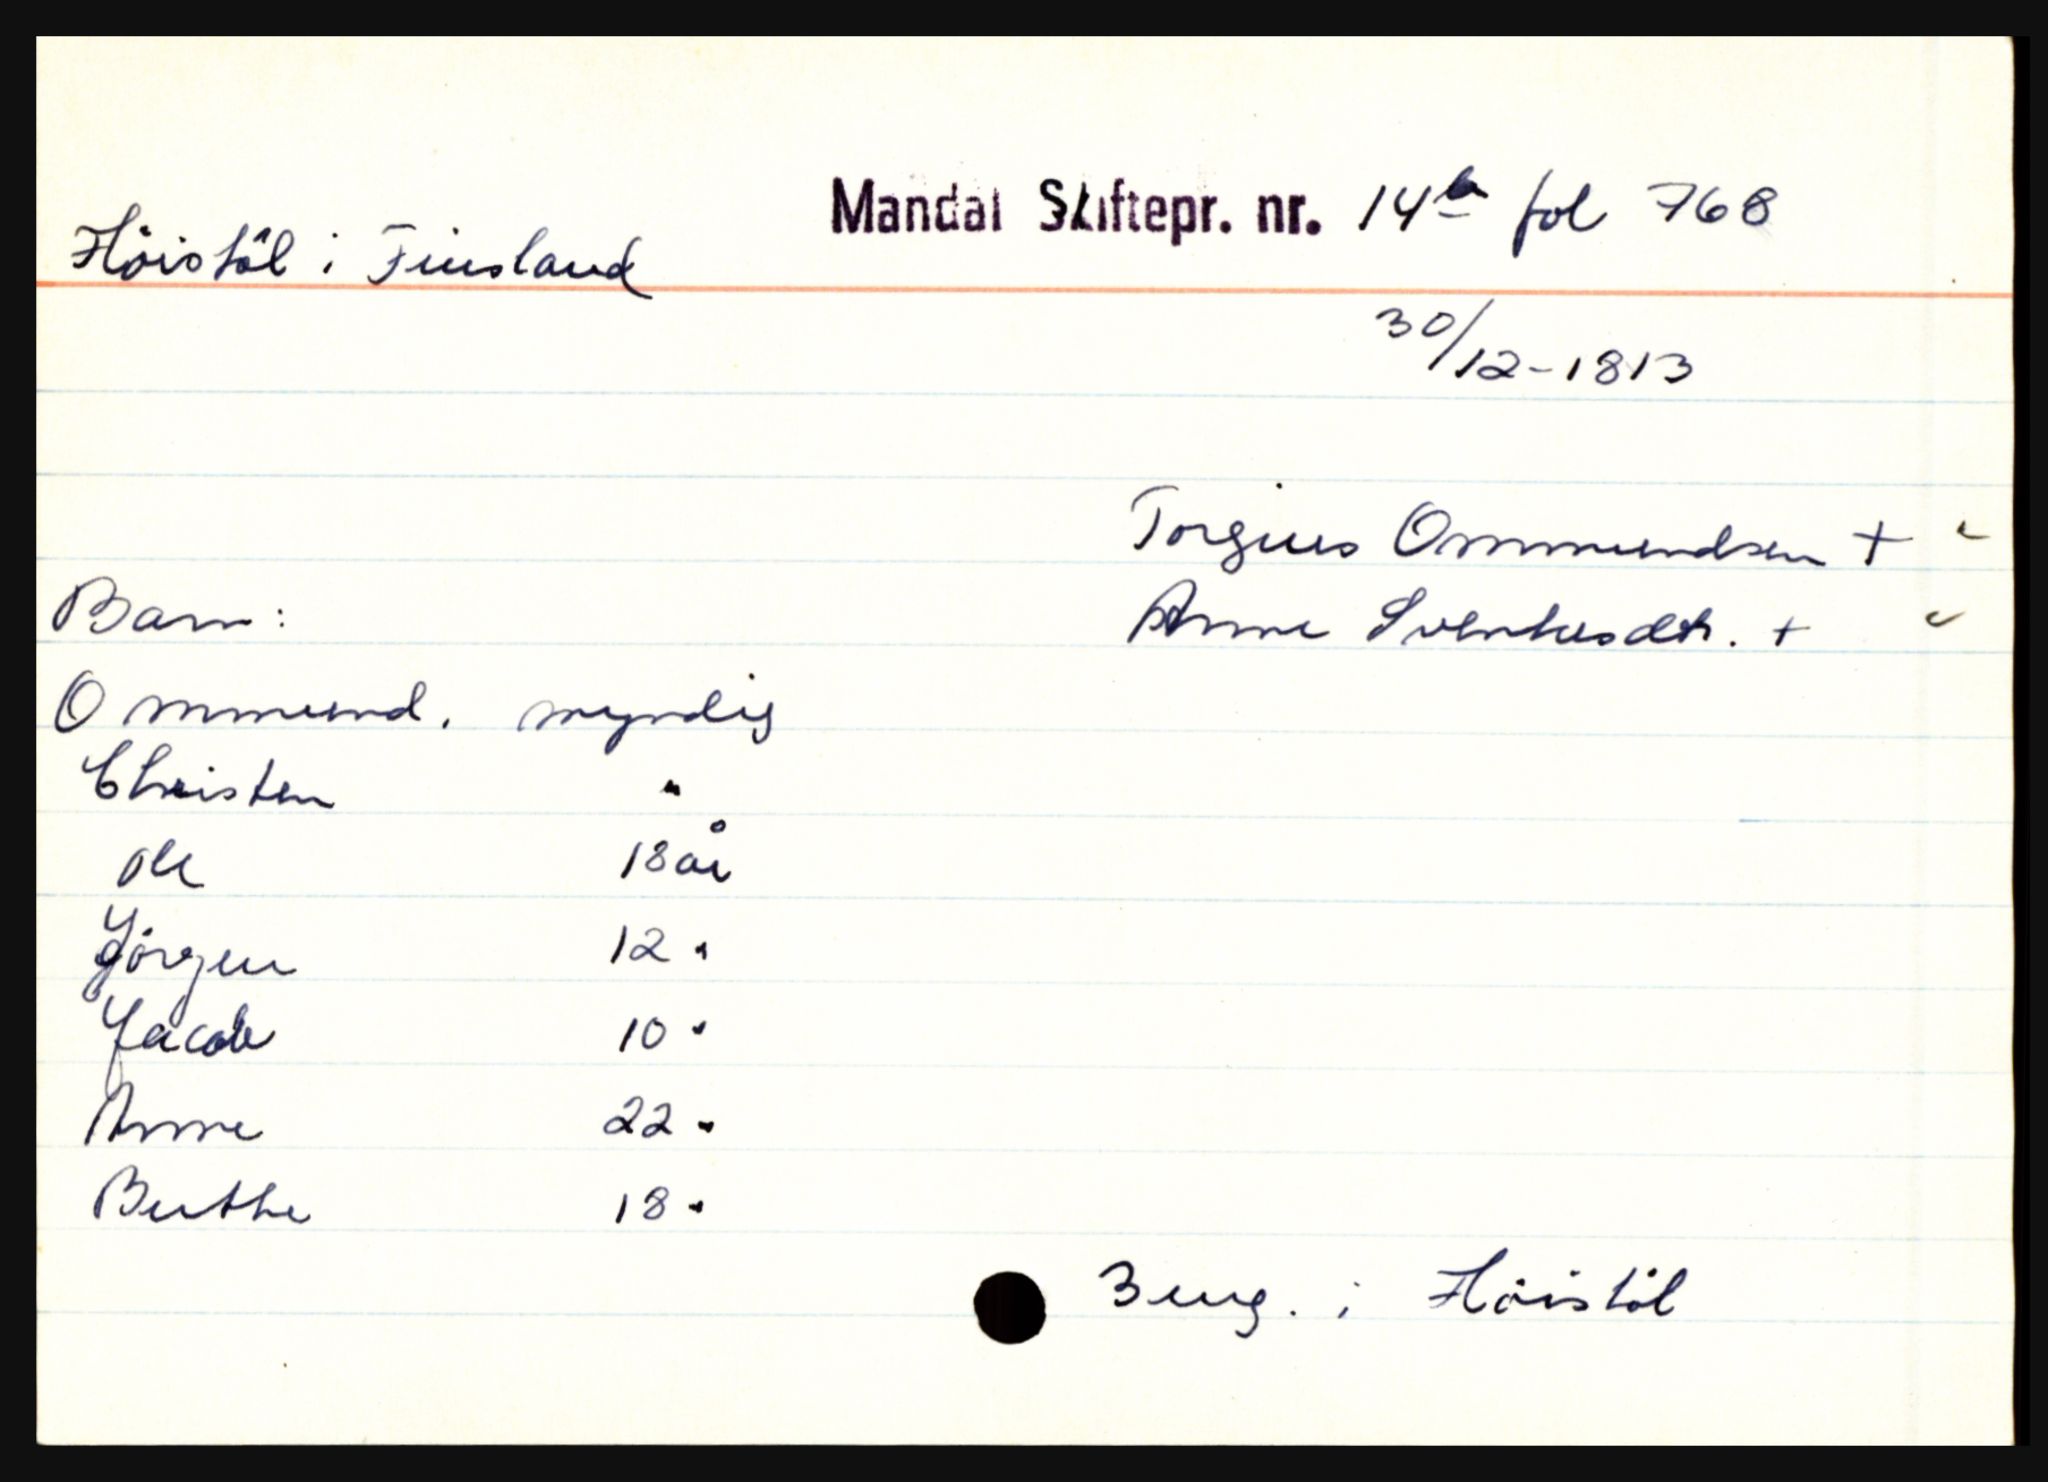 Mandal Skiftepr. nr. 14b fol 768
Höistöl i Finsland
30/12-1813
Torgius Ommundsen +
Barn: Anne Svenkesdtr. +
Ommund. myndig
Christen "
Ole 18 år
Jörgen 12 "
Jacob 10 "
Anne 22 "
Berthe 18 "
3 eng. i Höistöl